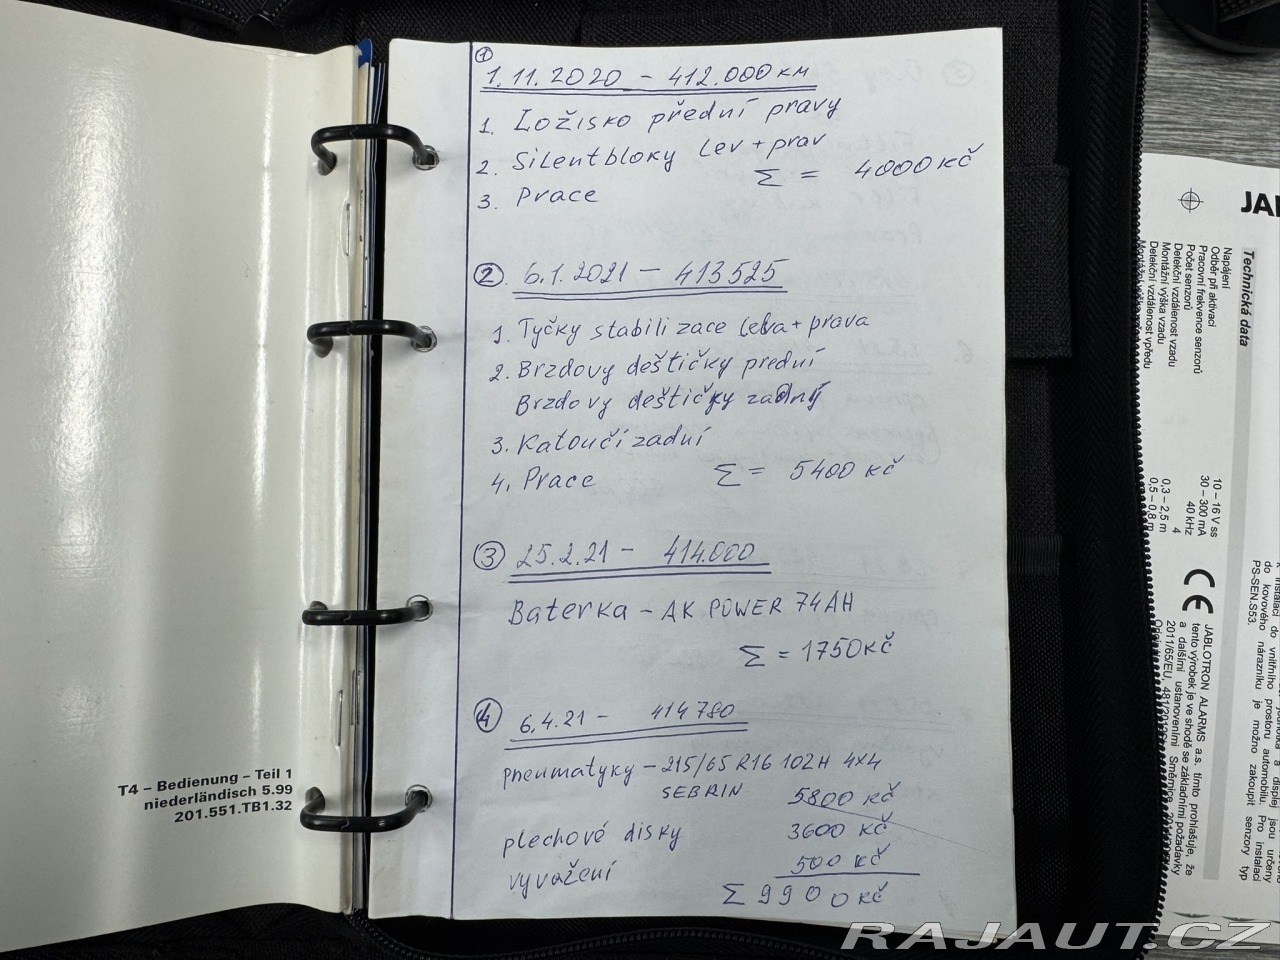 T4 – Bedienung – Teil 1
niederländisch 5.99
201.551.TB1.32
1
1.11.2020 – 412.000 км
1. Ložisko přední pravy
2. Silentbloky lev + prav
Σ = 4000 kč
3. Prace
2 6.1.2021 – 413525
1. Tyčky stabilizace leva + prava
2. Brzdovy deštičky přední
Brzdovy deštičky zadný
3. Katoučí zadní
4. Prace Σ = 5400 kč
3 25.2.21 – 414.000
Baterka – AK POWER 74AH
Σ = 1750 kč
4 6.4.21 – 414780
pneumatyky – 215/65 R16 102H 4x4
SEBRIN 5800 kč
plechové disky 3600 kč
vyvažení 500 kč
Σ 9900 kč
JA
Technická data
Napájení 10 – 16 V ss
Odběr při aktivaci 30 – 300 mA
Pracovní frekvence senzorů 40 kHz
Počet senzorů 4
Detekční vzdálenost vzadu 0,3 – 2,5 m
Montážní výška vzadu
Detekční vzdálenost vpředu 0,5 – 0,8 m
CE
JABLOTRON ALARMS a.s. tímto prohlašuje, že
tento výrobek je ve shodě se základními požadavky
a dalšími ustanoveními Směrnice
2011/65/EU,
do vnitřního prostoru automobilu. Pro instalaci
do kovového nárazníku je možno zakoupit senzory typ
PS-SEN.S53.
RAJAUT.CZ